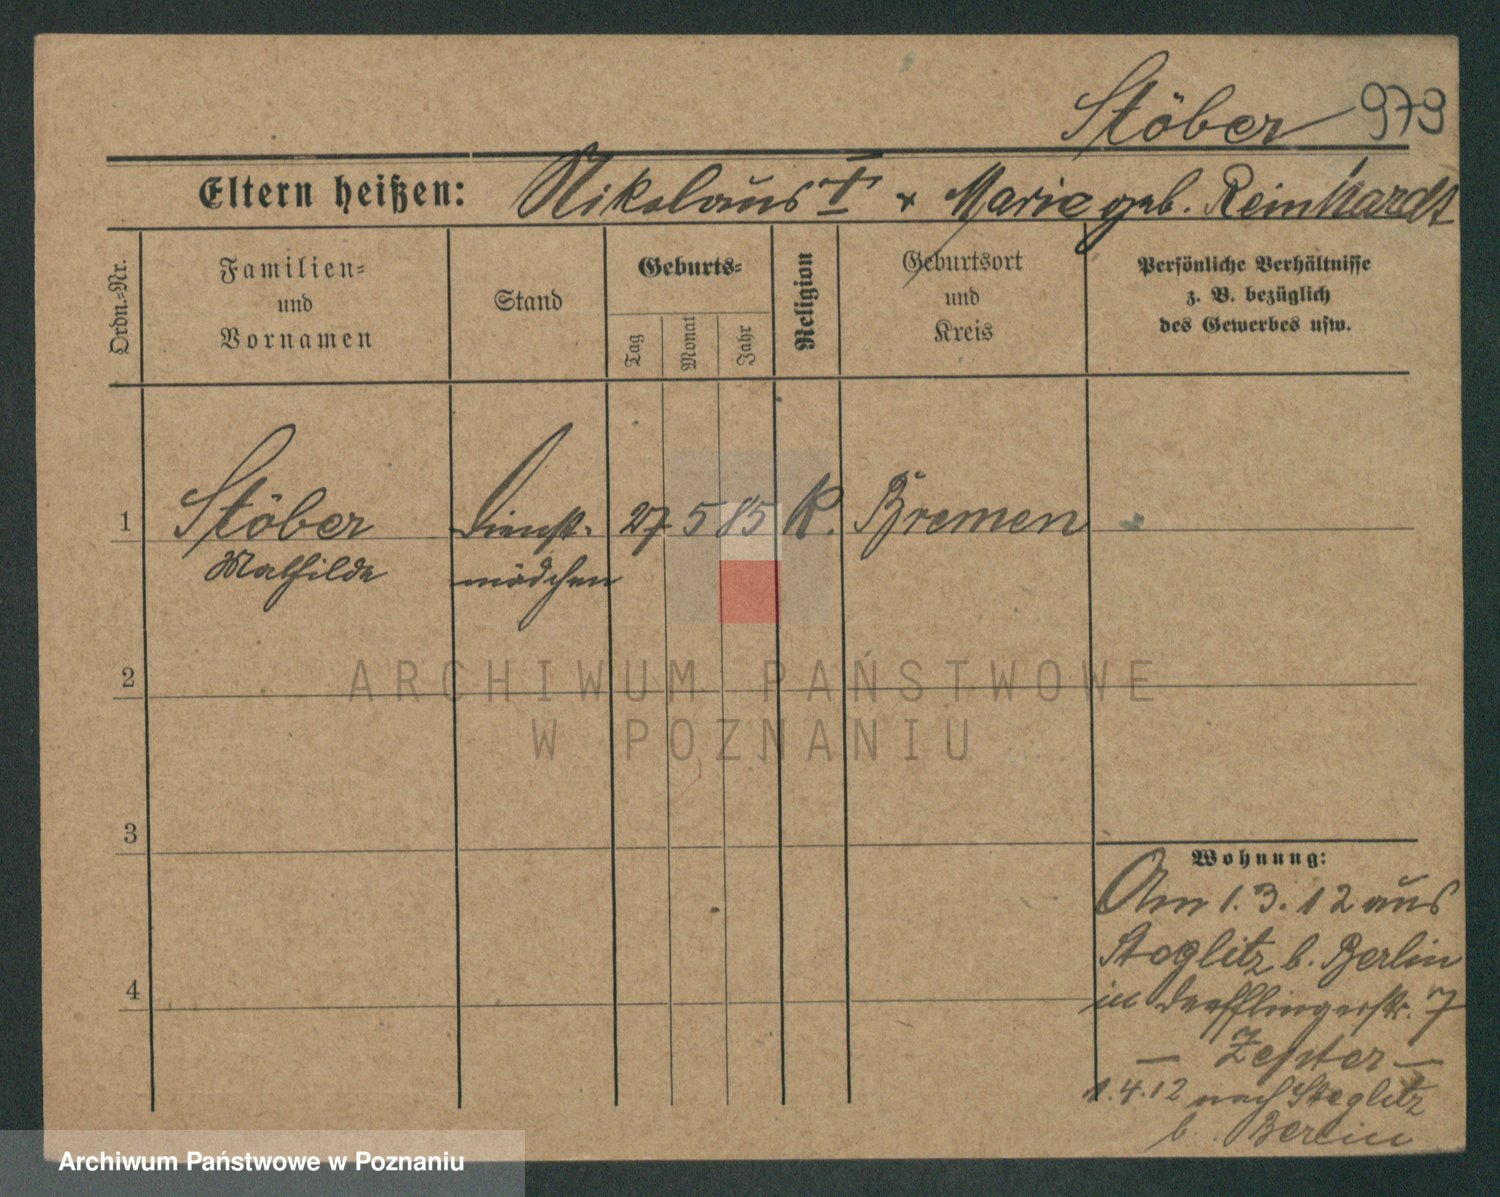 Stöber 979
Eltern heißen: Nikolaus † + Marie geb. Reinhardt
Ordn.=Nr.
Familien=
und
Vornamen
Stand
Geburts=
Tag
Monat
Jahr
Religion
Geburtsort
und
Kreis
Persönliche Verhältnisse
z. B. bezüglich
des Gewerbes usw.
1 Stöber Dienst- 27 5 85 K. Bremen
Mathilde mädchen
2
ARCHIWUM PAŃSTWOWE
W POZNANIU
3
Wohnung:
Am 1.3.12 aus
Steglitz b. Berlin
4
in Derfflingerstr. 7
1.4.12 nach Steglitz
b. Berlin
Archiwum Państwowe w Poznaniu